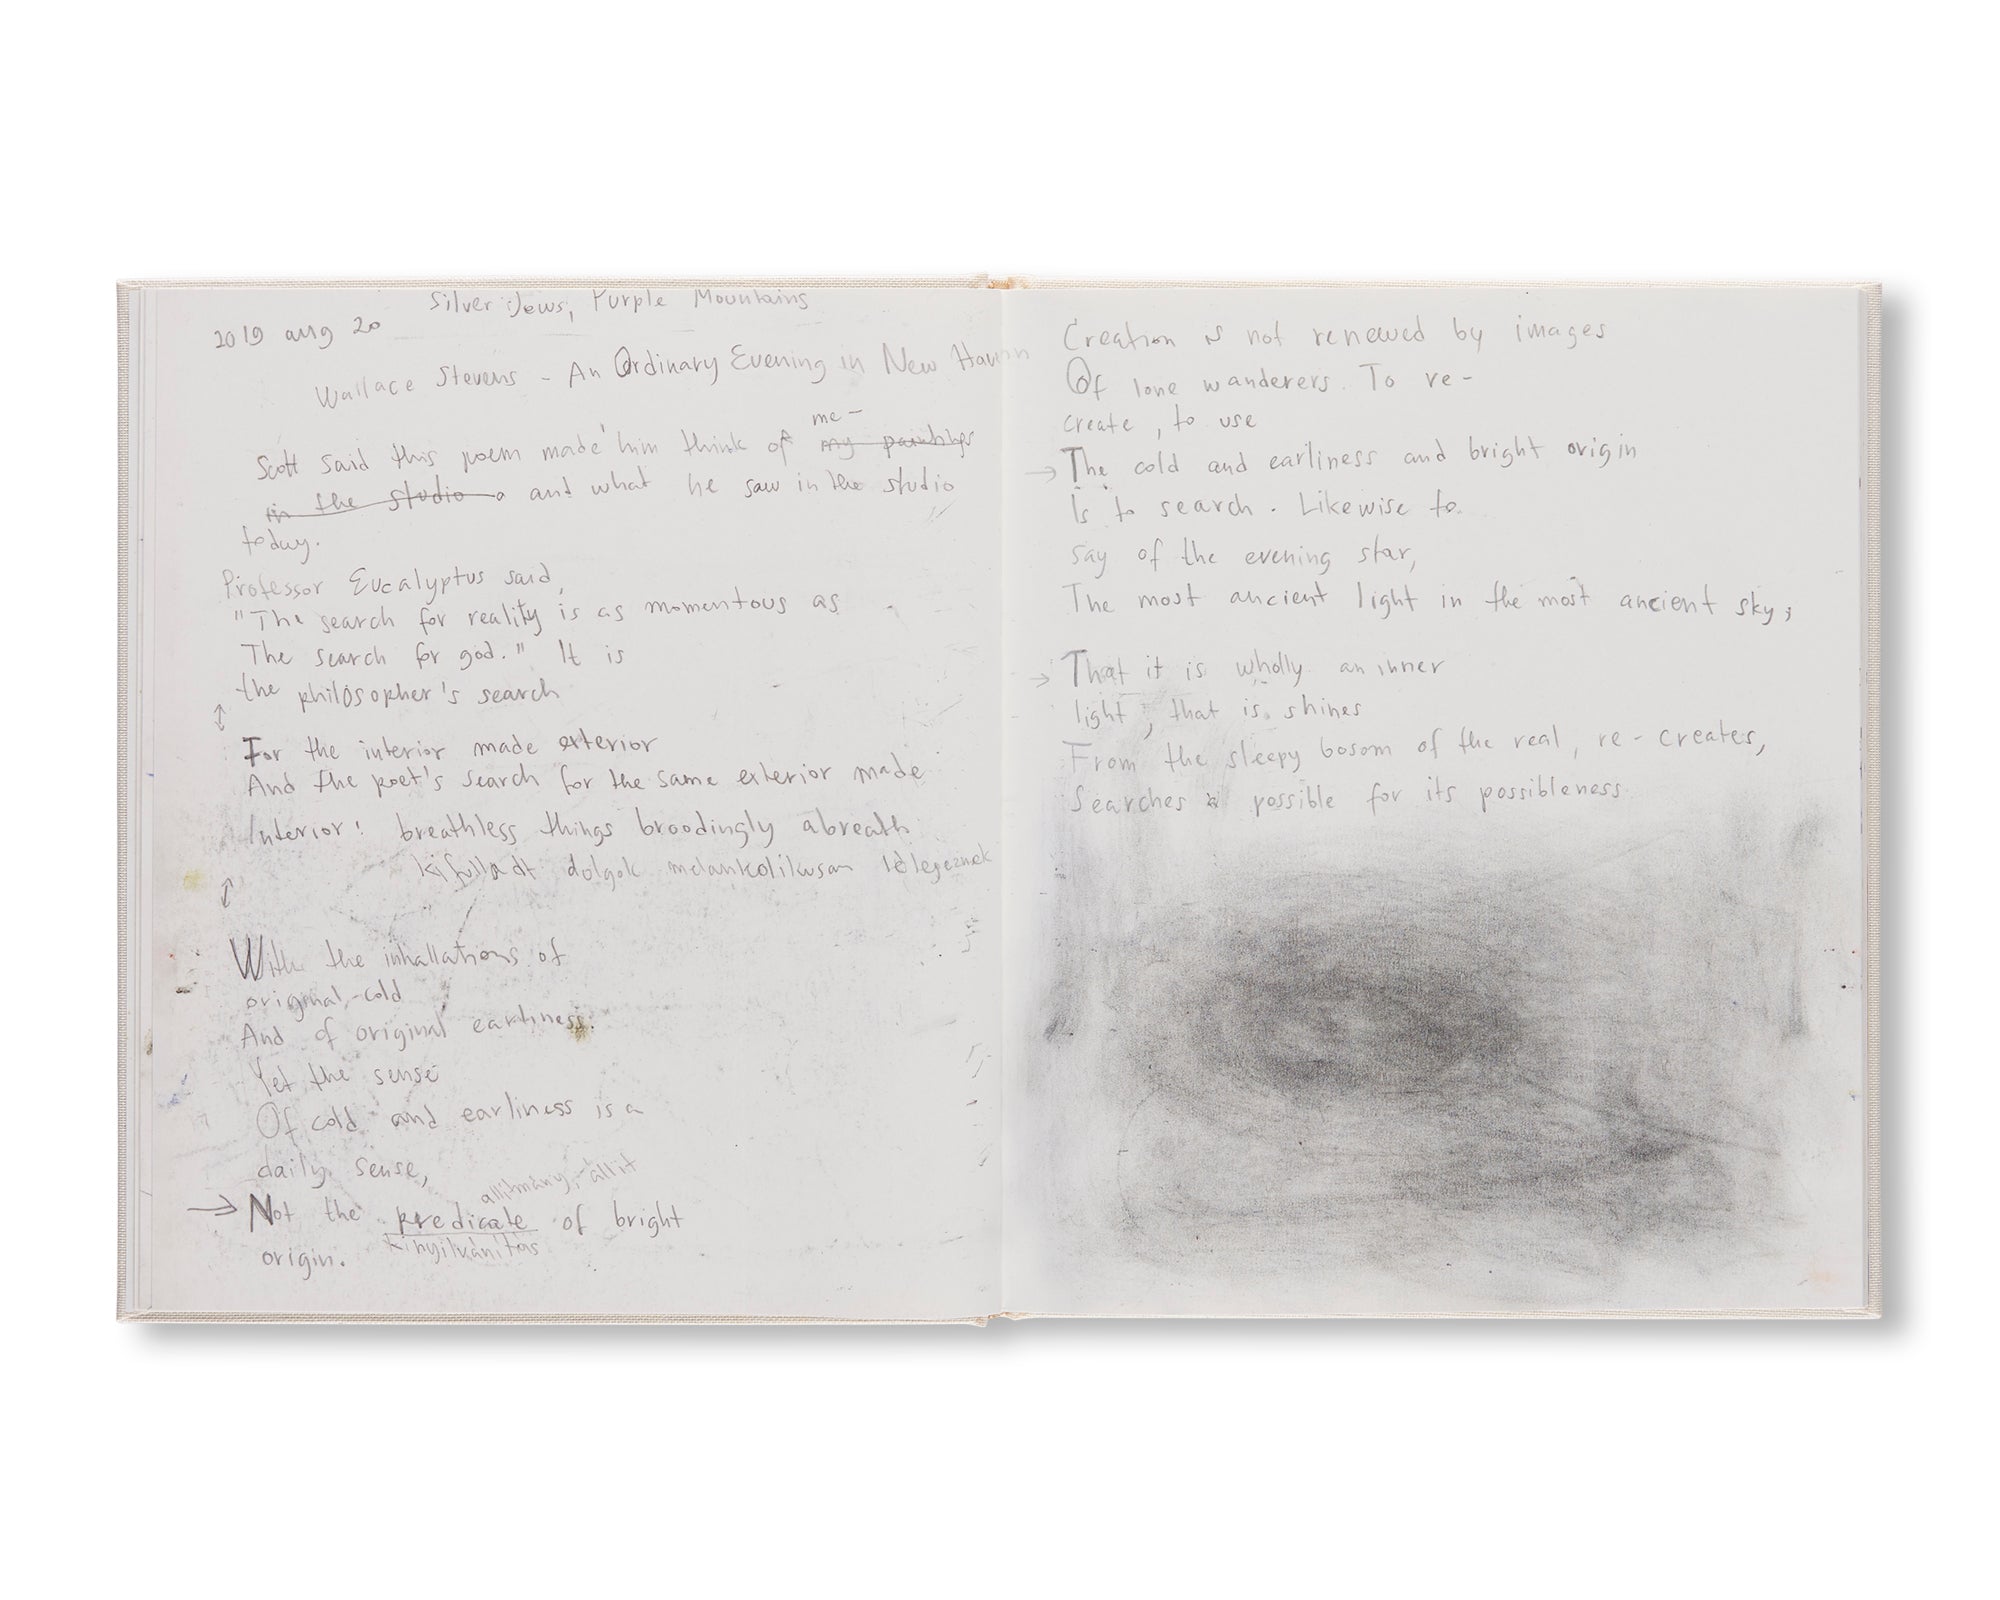 Silver Jews, Purple Mountains
2019 aug 20
Wallace Stevens - An Ordinary Evening in New Haven
me-
Scott said this poem made him think of my paintings
in the studio a and what he saw in the studio
today.
Professor Eucalyptus said,
"The search for reality is as momentous as
The search for god." It is
the philosopher's search
For the interior made exterior
And the poet's search for the same exterior made
Interior: breathless things broodingly abreath
kifulladt dolgok melankolikusan lélegeznek
With the inhallations of
original cold
And of original earliness.
Yet the sense
Of cold and earliness is a
daily sense,
állítmány, állít
Not the predicate of bright
kinyilvánítás
origin.
Creation is not renewed by images
Of lone wanderers. To re-
create, to use
The cold and earliness and bright origin
Is to search. Likewise to
say of the evening star,
The most ancient light in the most ancient sky,
That it is wholly an inner
light, that is shines
From the sleepy bosom of the real, re-creates,
Searches a possible for its possibleness